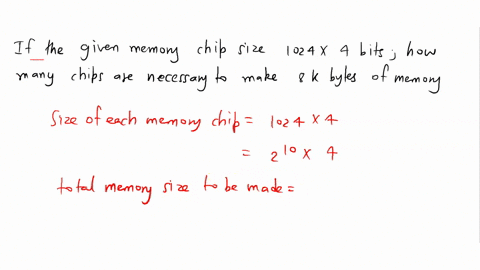 If the given memory chip size 1024 X 4 bits; how
many chips are necessary to make 8 k bytes of memory
Size of each memory chip = 1024 X 4
= 2^10 X 4
total memory size to be made =